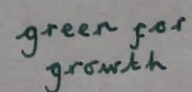 green for
growth